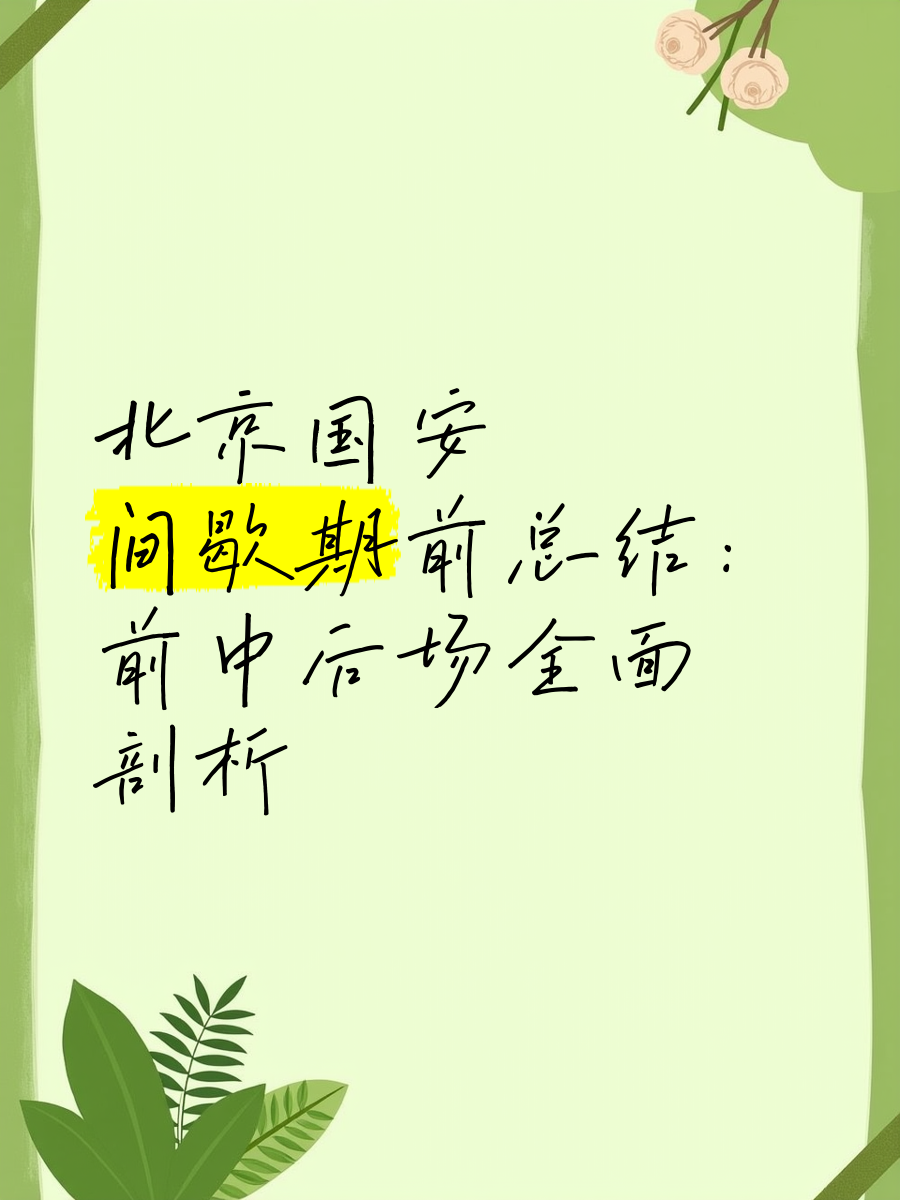 北京国安
间歇期前总结：
前中后场全面
剖析